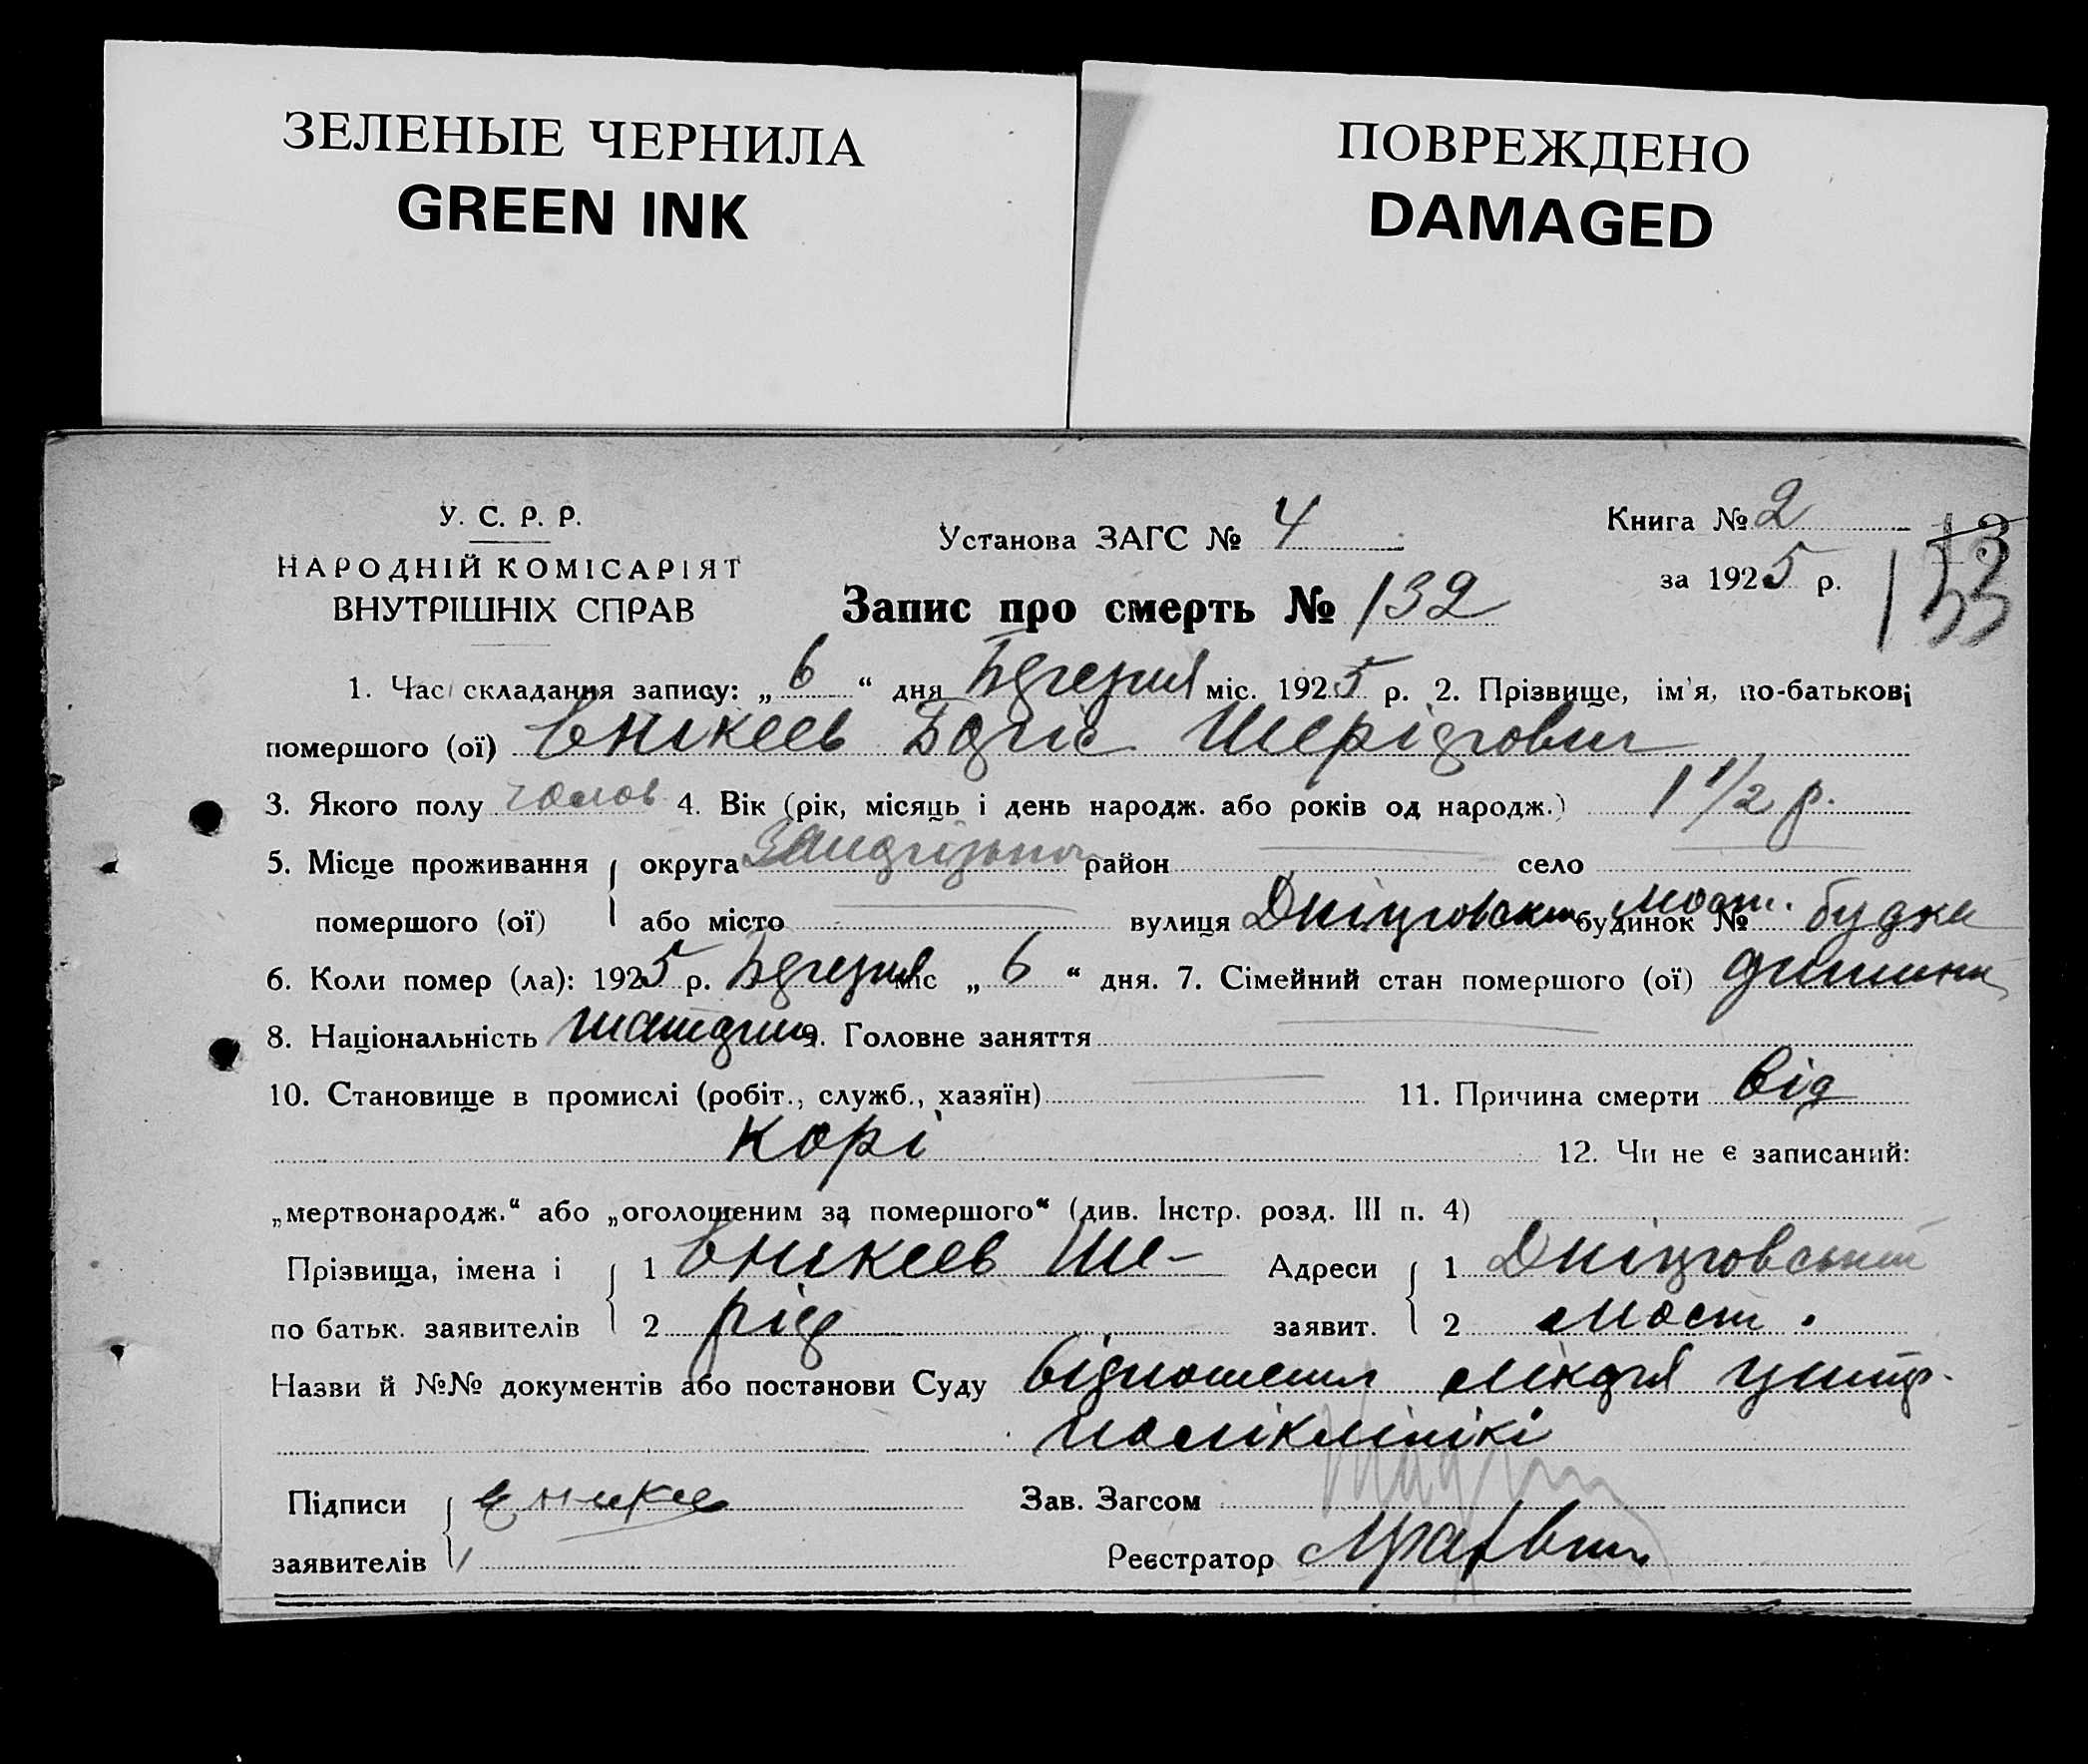 ЗЕЛЕНЫЕ ЧЕРНИЛА
GREEN INK
ПОВРЕЖДЕНО
DAMAGED
У. С. Р. Р.
НАРОДНІЙ КОМІСАРІЯТ
ВНУТРІШНІХ СПРАВ
Установа ЗАГС № 4
Книга № 2
за 1925 р.
133
Запис про смерть № 132
1. Час складання запису: „ 6 “ дня Березня міс. 1925 р. 2. Прізвище, ім'я, по-батькові
помершого (ої) Еникеев Шерідович
3. Якого полу чолов 4. Вік (рік, місяць і день народж. або років од народж.) 1 1/2 р.
5. Місце проживання округа район село
помершого (ої) або місто вулиця мост. будинок № будка
6. Коли помер (ла): 1925 р. Березня міс „ 6 “ дня. 7. Сімейний стан помершого (ої) дитина
8. Національність татарин 9. Головне заняття
10. Становище в промислі (робіт., служб., хазяїн) 11. Причина смерти від
корі 12. Чи не є записаний:
„мертвонародж.“ або „оголошеним за помершого“ (див. Інстр. розд. III п. 4)
Прізвища, імена і 1 Еникеев Ше- Адреси 1
по батьк. заявителів 2 рід заявит. 2 мост.
Назви й №№ документів або постанови Суду відношення лікаря центр.
поліклінікі
Підписи Еникеев Зав. Загсом
заявителів Реєстратор